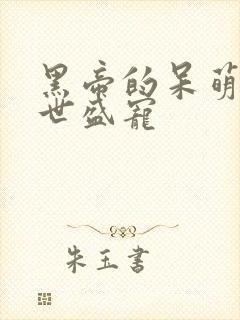 黑帝的呆萌
世盛宠
朱玉书